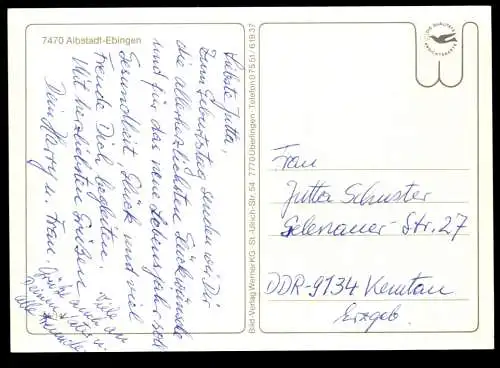 7470 Albstadt-Ebingen
Liebste Jutta,
zum Geburtstag senden wir Dir
die allerherzlichsten Glückwünsche
und für das neue Lebensjahr soll
Gesundheit, Glück und viel
Freude Dich begleiten.
Mit herzlichsten Grüßen
Dein Harry u. Frau.
Viele
Grüße auch an
Deinen u.
alle Freunde
Bild-Verlag Werner KG · St.-Ulrich-Str. 54 · 7770 Überlingen · Telefon 0 75 51 / 6 19 37
DIE QUALITÄTS
ANSICHTSKARTE
Frau
Jutta Schuster
Selenauer-Str. 27
DDR-9134 Kemtau
Erzgeb.